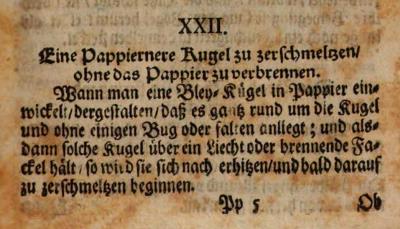 XXII.
Eine Pappiernere Kugel zu zerschmeltzen/
ohne das Pappier zu verbrennen.
Wann man eine Bley-Kügel in Pappier ein-
wickelt/dergestalten/daß es gantz rund um die Kugel
und ohne einigen Bug oder falten anliegt; und als-
dann solche Kugel über ein Liecht oder brennende Fa-
ckel hält/so wird sie sich nach erhitzen/und bald darauf
zu zerschmeltzen beginnen.
Pp 5 Ob